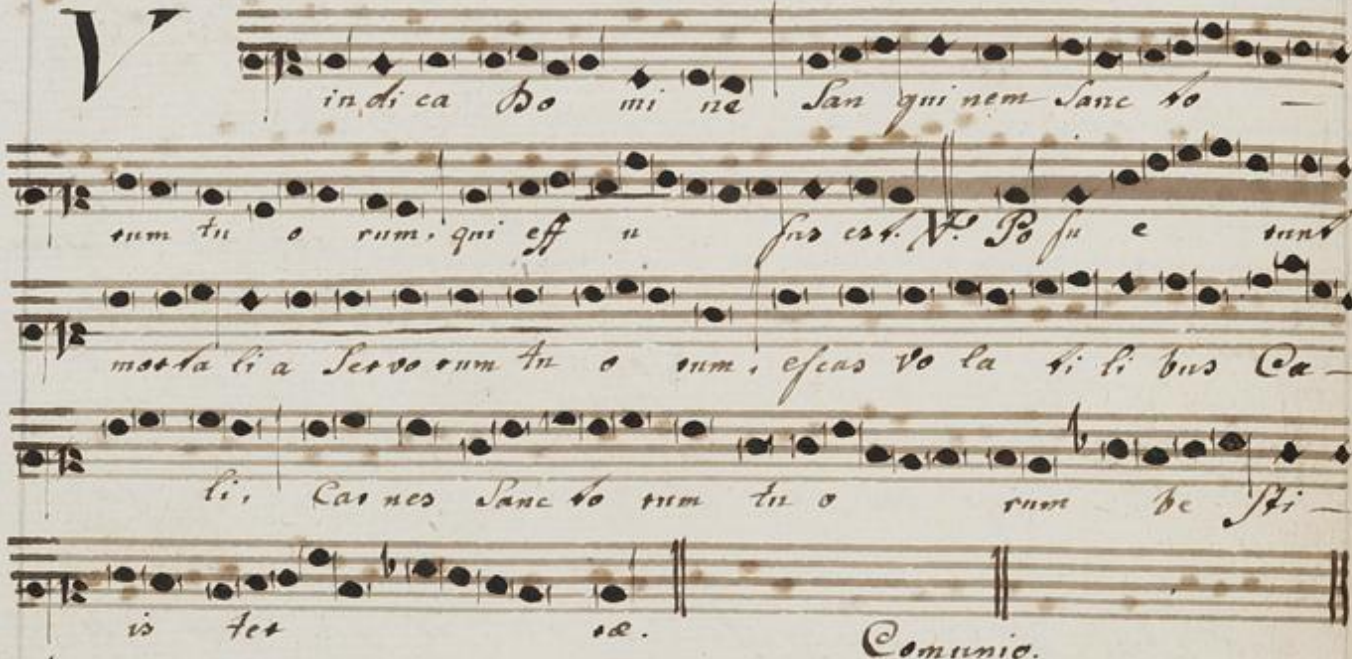 V in di ca Do mi ne San qui nem Sanc to –
rum tu o rum. qui eff u sus est. V. Po su e runt
mor ta li a Servo rum tu o rum, escas Vo la ti li bus Cæ –
li, Car nes Sanc to rum tu o rum be Sti –
is ter ræ.
Comunio.